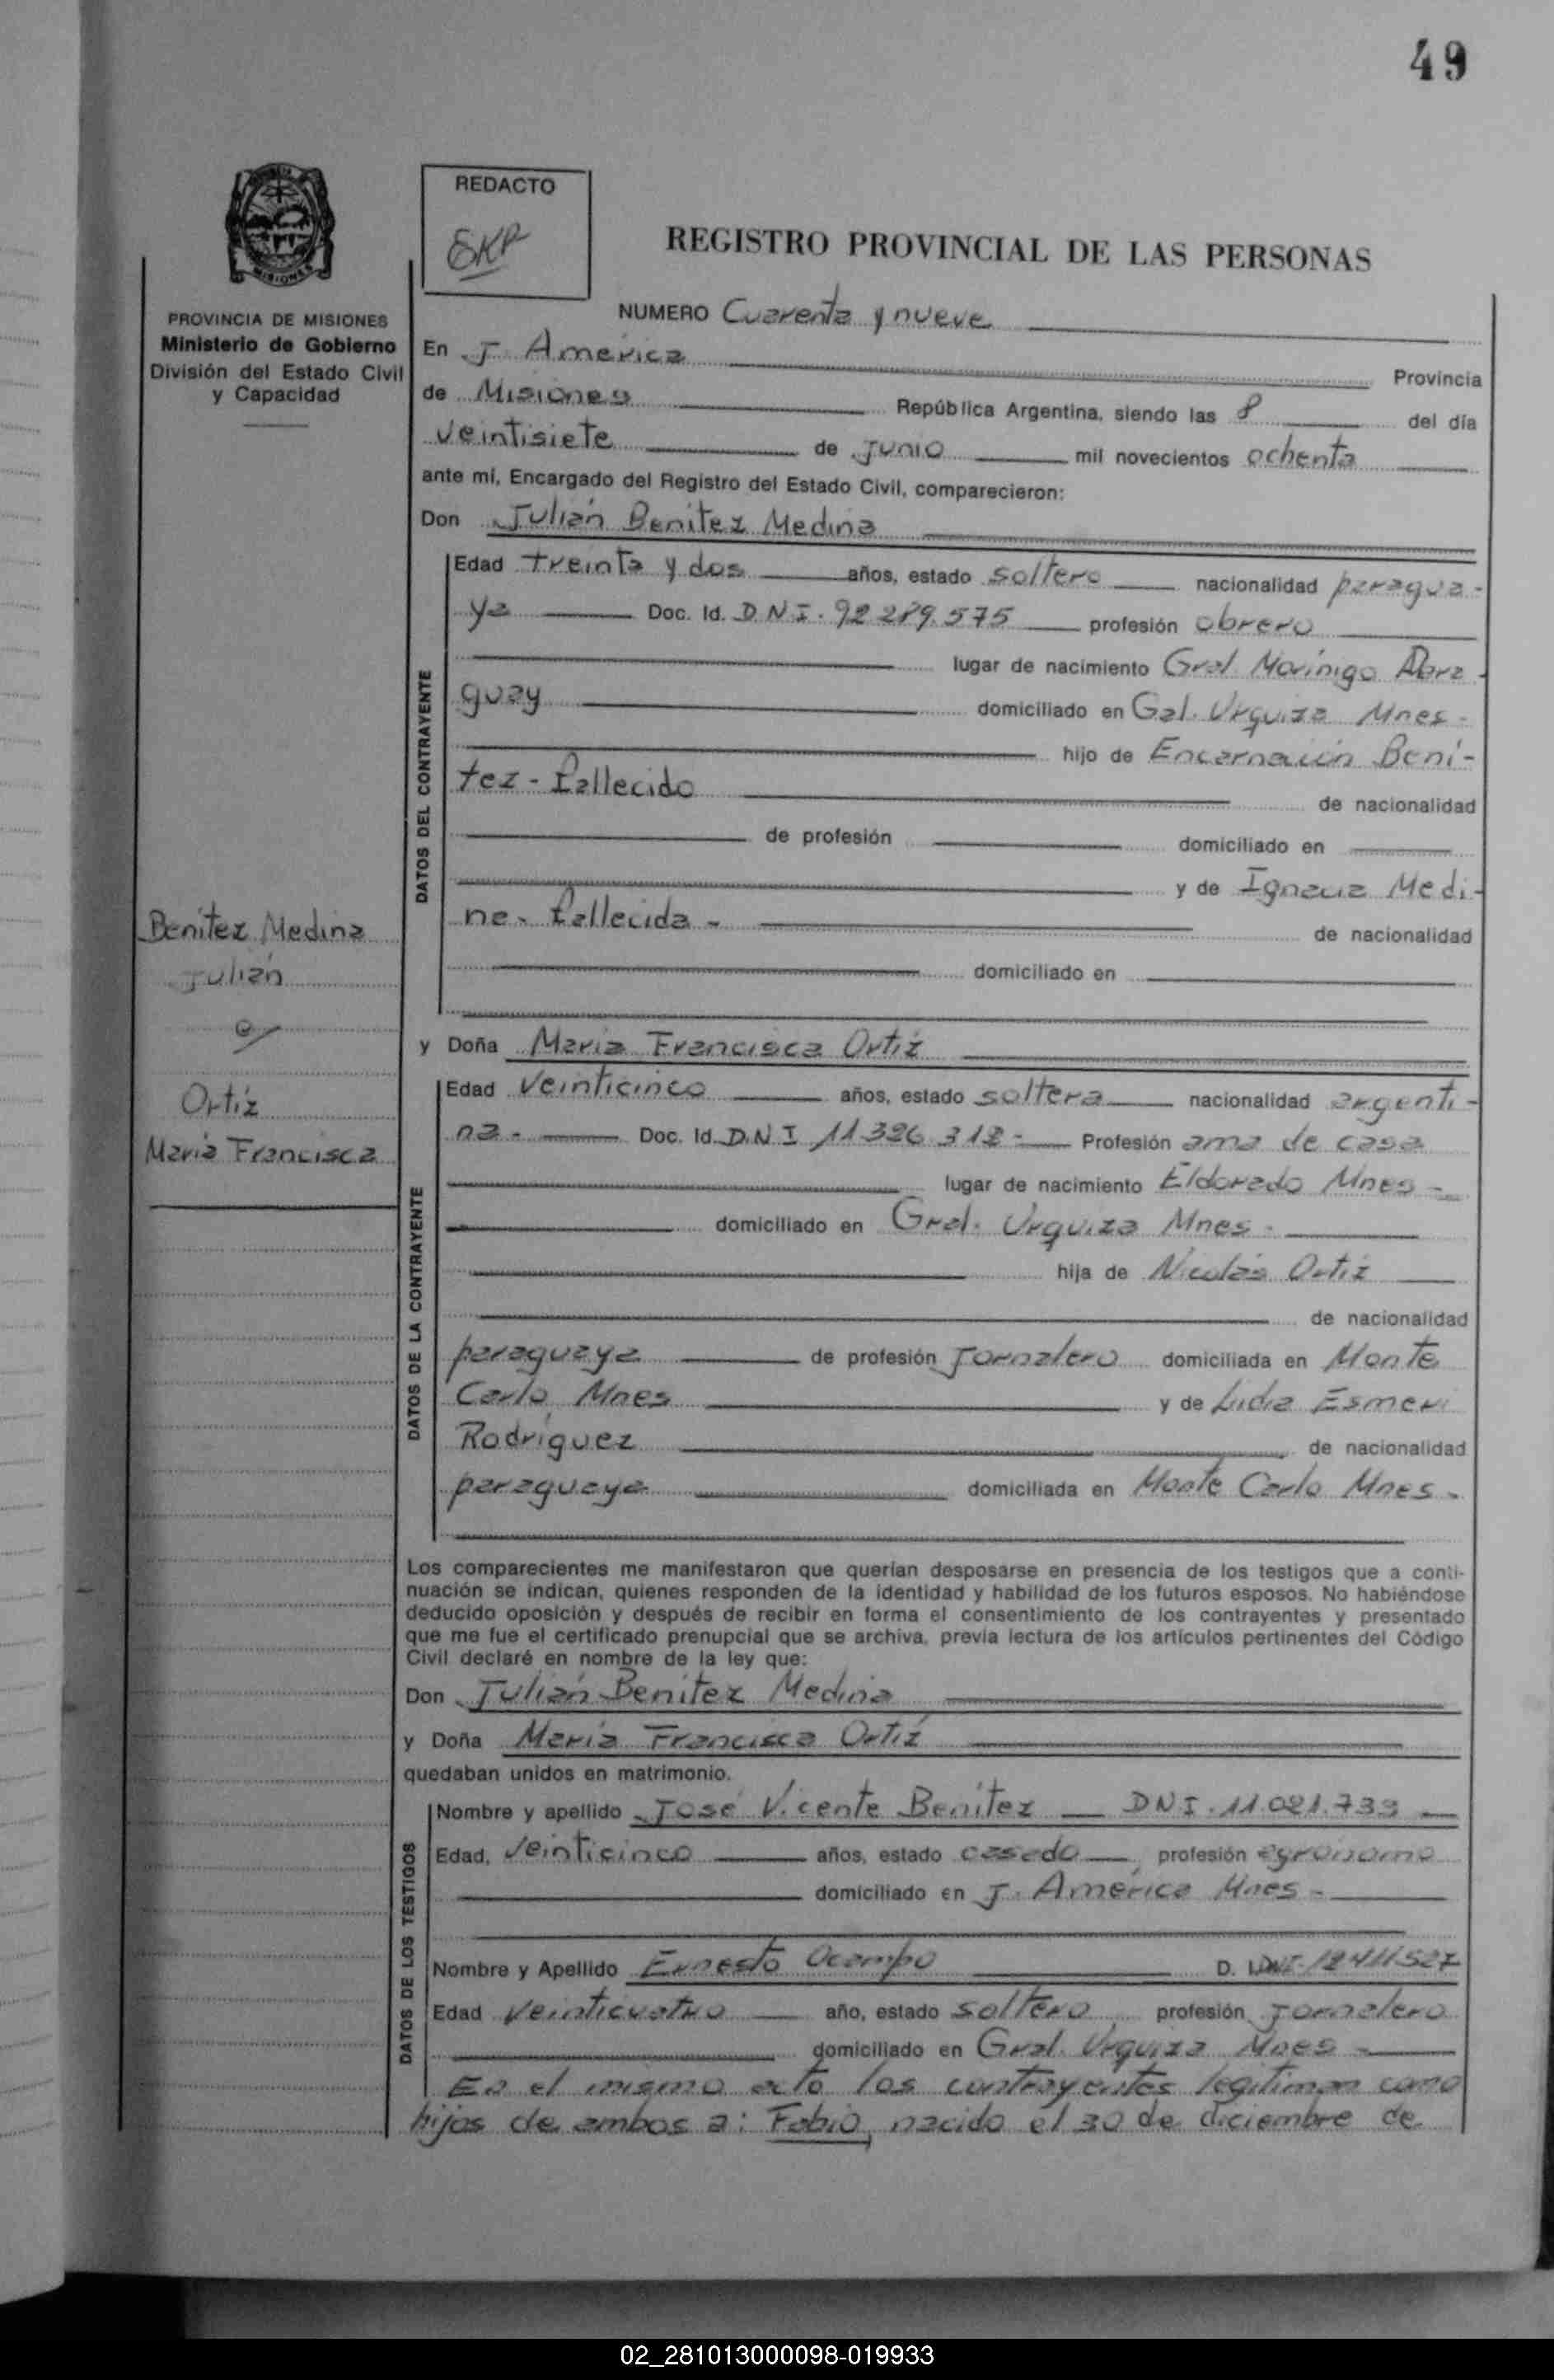 49
REDACTO
REGISTRO PROVINCIAL DE LAS PERSONAS
MISIONES
PROVINCIA DE MISIONES
Ministerio de Gobierno
División del Estado Civil
y Capacidad
NUMERO Cuarenta y nueve
En J. América Provincia
de Misiones República Argentina, siendo las 8 del día
veintisiete de junio mil novecientos ochenta
ante mí, Encargado del Registro del Estado Civil, comparecieron:
Don Julián Benítez Medina
DATOS DEL CONTRAYENTE
Edad treinta y dos años, estado soltero nacionalidad paragua-
ya Doc. Id. D.N.I. 92.289.575 profesión obrero
lugar de nacimiento Gral. Morínigo Para-
guay domiciliado en Gal. Urquiza Mnes-
hijo de Encarnación Bení-
tez - fallecido de nacionalidad
de profesión domiciliado en
y de Ignacia Medi-
na - fallecida - de nacionalidad
domiciliado en
Benítez Medina
Julián
c/
Ortíz
María Francisca
y Doña María Francisca Ortíz
DATOS DE LA CONTRAYENTE
Edad veinticinco años, estado soltera nacionalidad argenti-
na - Doc. Id. D.N.I 11 326 312 - Profesión ama de casa
lugar de nacimiento Eldorado Mnes -
domiciliado en Gral. Urquiza Mnes -
hija de Nicolás Ortíz
de nacionalidad
paraguaya de profesión Jornalero domiciliada en Monte
Carlo Mnes y de Lidia Esmeri
Rodríguez de nacionalidad
paraguaya domiciliada en Monte Carlo Mnes -
Los comparecientes me manifestaron que querían desposarse en presencia de los testigos que a conti-
nuación se indican, quienes responden de la identidad y habilidad de los futuros esposos. No habiéndose
deducido oposición y después de recibir en forma el consentimiento de los contrayentes y presentado
que me fue el certificado prenupcial que se archiva, previa lectura de los artículos pertinentes del Código
Civil declaré en nombre de la ley que:
Don Julián Benítez Medina
y Doña María Francisca Ortíz
quedaban unidos en matrimonio.
DATOS DE LOS TESTIGOS
Nombre y apellido José Vicente Benítez DNI. 11.021.733
Edad, veinticinco años, estado casado, profesión agrónomo
domiciliado en J. América Mnes -
Nombre y Apellido Ernesto Ocampo D. I. DNI. 12411527
Edad veinticuatro año, estado soltero, profesión jornalero
domiciliado en Gral. Urquiza Mnes -
En el mismo acto los contrayentes legitiman como
hijos de ambos a: Fabio, nacido el 30 de diciembre de
02_281013000098-019933